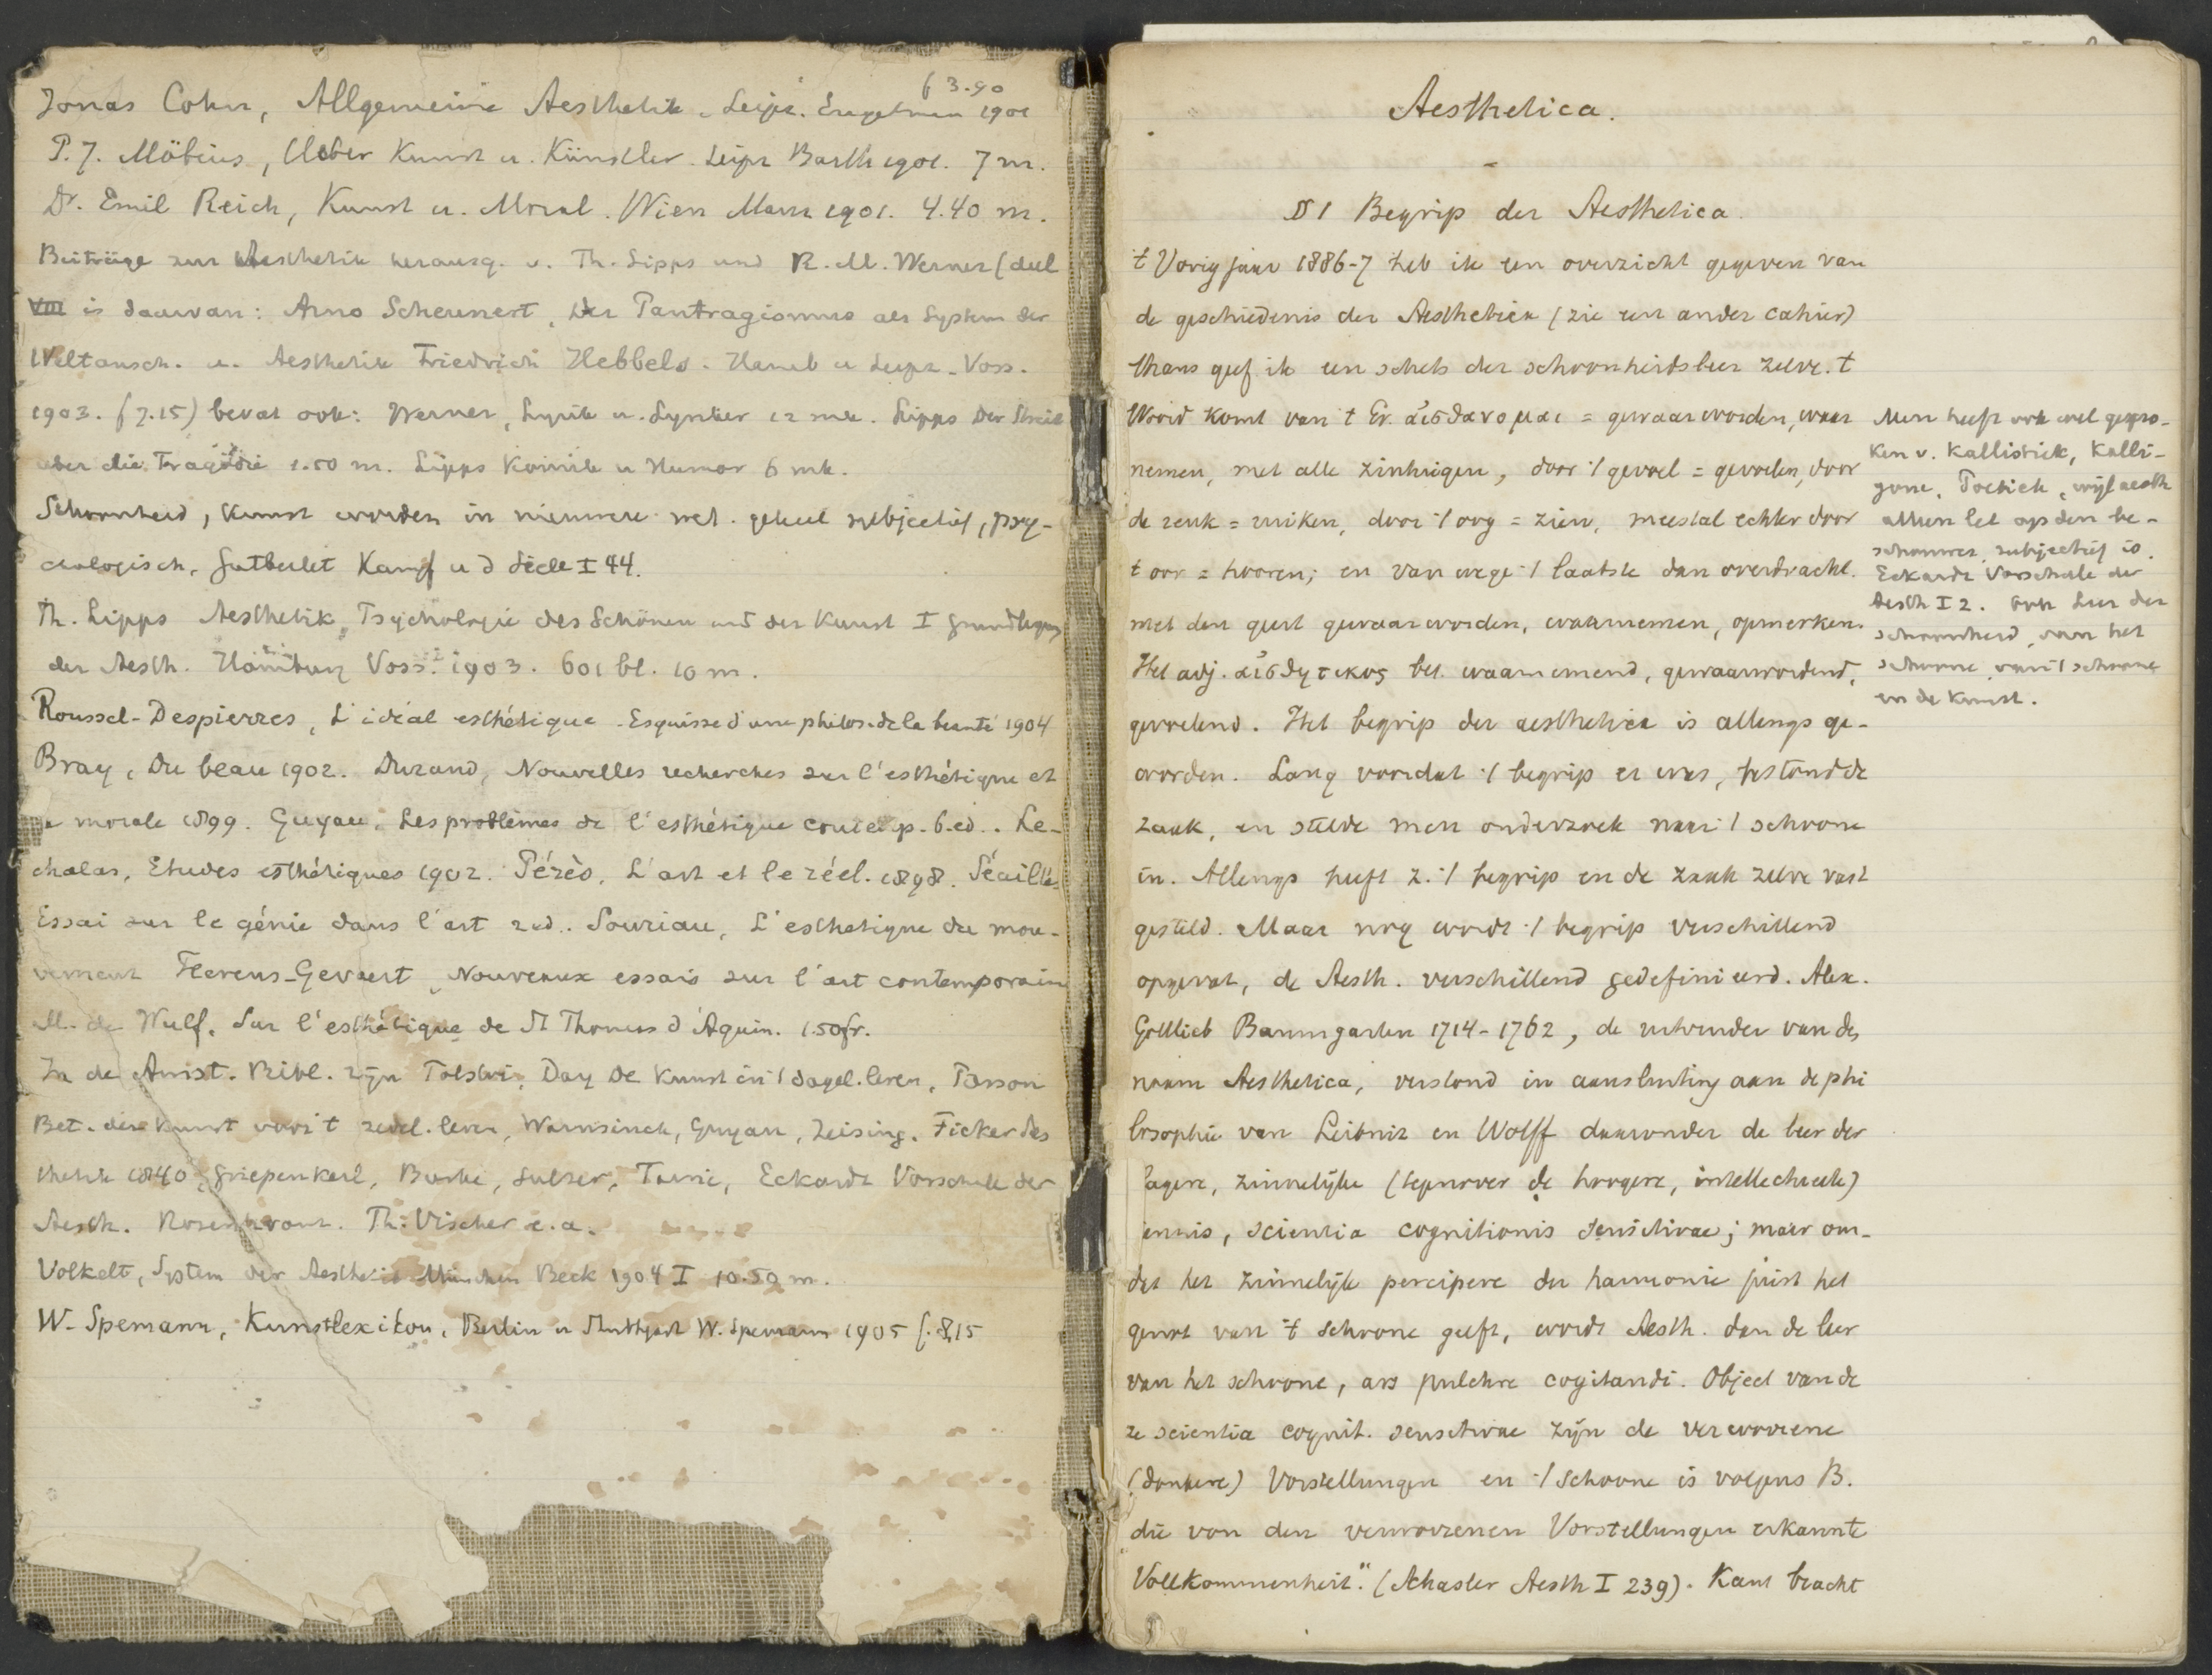 Jonas Cohn, Allgemeine Aesthetik. Leipz. Engelmann 1901 f 3.90
P. J. Möbius, Ueber Kunst u. Künstler. Leipz Barth 1901. 7 m.
Dr. Emil Reich, Kunst u. Moral. Wien Manz 1901. 4.40 m.
Beiträge zur Aesthetik herausg. v. Th. Lipps und R. M. Werner (deel
VIII is daarvan: Arno Scheunert, Der Pantragismus als System der
Weltansch. u. Aesthetik Friedrich Hebbels. Hamb u Leipz. Voss.
1903. f 7.15) bevat ook: Werner, Lyrik u. Lyriker 12 mk. Lipps Der Streit
uber die Tragödie 1.50 m. Lipps Komik u Humor 6 mk.
Schoonheid, kunst worden in nieuwere wet. geheel subjectief, psy-
chologisch, Gutberlet Kampf u d Seele I 44.
Th. Lipps Aesthetik, Psychologie des Schönen und der Kunst I Grundlegung
der Aesth. Hamburg Voss. 1903. 601 bl. 10 m.
Roussel-Despierres, L'idéal esthétique. Esquisse d'une philos. de la beauté 1904
Bray, Du beau 1902. Durand, Nouvelles recherches sur l'esthétique et
la morale 1899. Guyau, Les problèmes de l'esthétique contemp. 6. ed.. Le-
chalas, Etudes esthétiques 1902. Pérès, L'art et le réel. 1898. Séailles
Essai sur le génie dans l'art 2 ed.. Souriau, L'esthetique du mou-
vement Fierens-Gevaert, Nouveaux essais sur l'art contemporain
M. de Wulf, Sur l'esthétique de St Thomas d'Aquin. 1.50 fr.
In de Amst. Bibl. zijn Tolstoi, Day De Kunst in 't dagel. leven,
Bet. der Kunst voor 't zedel. leven, Warnsinck, Guyau, Zeising, Ficker Aes
thetik 1840, Griepenkerl, Burke, Sulzer, Taine, Eckardt Vorschule der
Aesth. Rosenkranz. Th. Vischer e.a.
Volkelt, System der Aesthetik München Beck 1904 I 10.50 m.
W. Spemann, Kunstlexikon, Berlin u Stuttgart W. Spemann 1905 f. 8,15
Aesthetica.
§ 1 Begrip der Aesthetica.
't Vorig jaar 1886-7 heb ik een overzicht gegeven van
de geschiedenis der Aesthetica (zie een ander cahier)
thans geef ik een schets der schoonheidsleer zelve. 't
Woord komt van 't Gr. αἰσθανομαι = gewaarworden, waar
nemen, met alle zintuigen, door 't gevoel = gevoelen, door
de reuk = ruiken, door 't oog = zien, meestal echter door
't oor = hooren; en van wege 't laatste dan overdracht.
met den geest gewaarworden, waarnemen, opmerken.
Het adj. αἰσθητικος bet. waarnemend, gewaarwordend,
gevoelend. Het begrip der aesthetica is allengs ge-
worden. Lang voordat 't begrip er was, bestond de
zaak, en stelde men onderzoek naar 't schoone
in. Allengs heeft z. 't begrip en de zaak zelve vast
gesteld. Maar nog wordt 't begrip verschillend
opgevat, de Aesth. verschillend gedefinieerd. Alex.
Gottlieb Baumgarten 1714-1762, de uitvinder van den
naam Aesthetica, verstond in aansluiting aan de phi
losophie van Leibniz en Wolff daaronder de leer der
lagere, zinnelijke (tegenover de hoogere, intellectueele)
kennis, scientia cognitionis sensitivae; maar om-
dat het zinnelijk percipere der harmonie juist het
genot van 't schoone geeft, wordt Aesth. dan de leer
van het schoone, ars pulchre cogitandi. Object van de
ze scientia cognit. sensitivae zijn de verworrene
(donkere) Vorstellungen en 't Schoone is volgens B.
die von den verworrenen Vorstellungen erkannte
Vollkommenheit". (Schasler Aesth I 239). Kant bracht
Men heeft ook wel gespro-
ken v. Kallistiek, Kalli-
gone, Poetiek, wijl aesth
alleen let op den be-
schouwer, subjectief is.
Eckardt Vorschule der
Aesth I 2. Ook Leer der
schoonheid, van het
schoone, van 't schoone
in de Kunst.